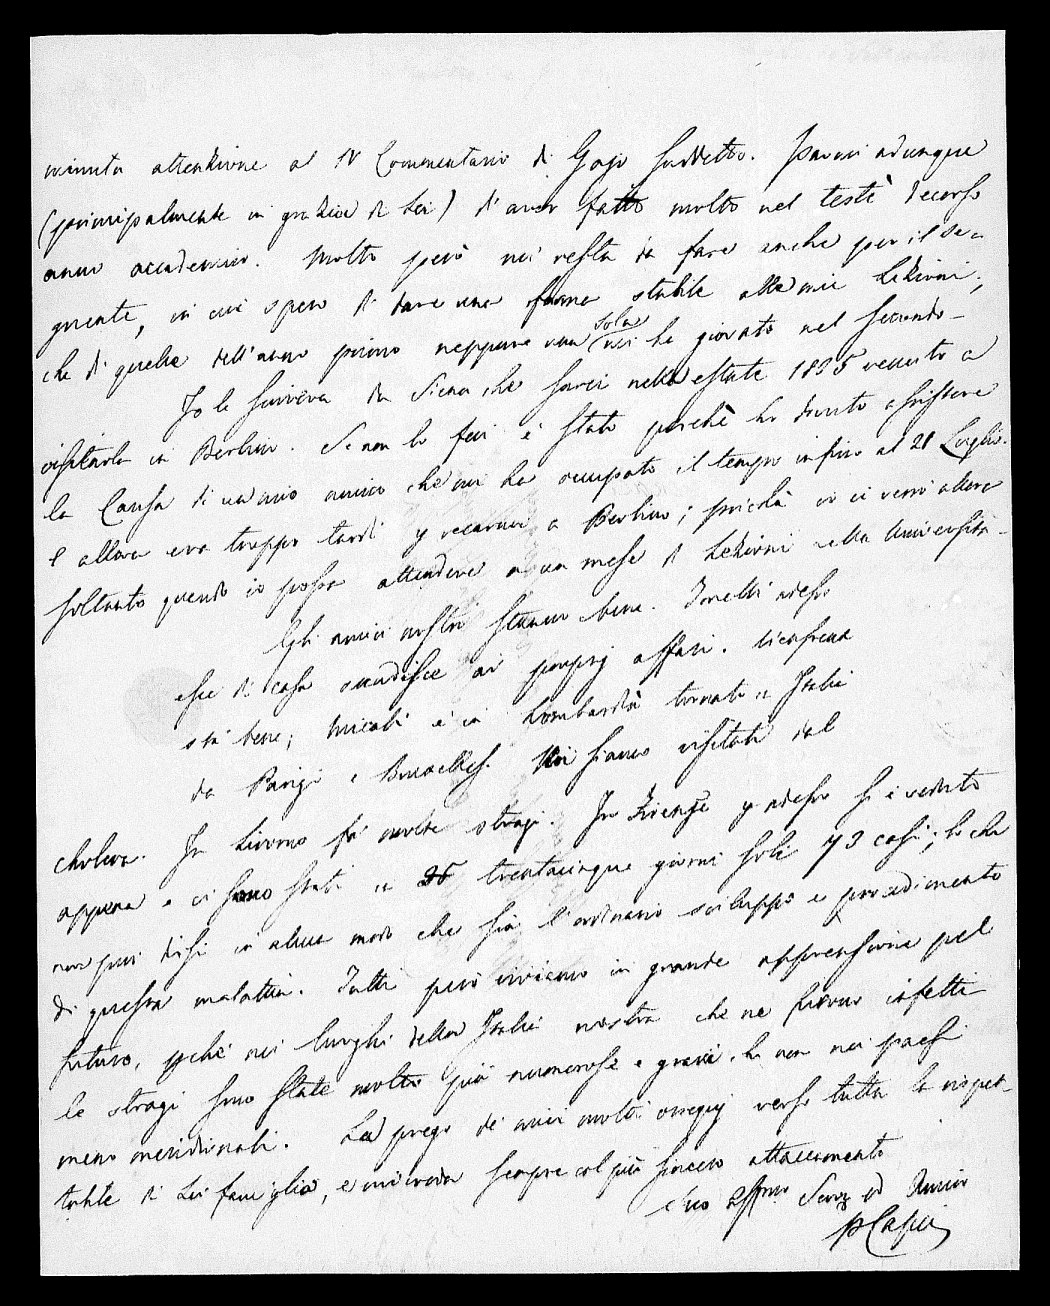 minuta attenzione al IV Commentario di Gajo suddetto. Parmi adunque
(principalmente in grazia di Lei) d'aver fatto molto nel testè decorso
anno accademico. Molto però mi resta da fare anche per il se-
guente, in cui spero di dare una forma stabile alle mie Lezioni;
che di quelle dell'anno primo neppure una sola mi ha giovato nel secondo.
Io le scriveva da Siena che sarei nella estate 1835 venuto a
visitarla in Berlino. Se non lo feci è stato perchè ho dovuto assistere
la Causa di un mio amico che mi ha occupato il tempo infino al 21 Luglio.
E allora era troppo tardi p recarmi a Berlino; poichè io ci verrò allora
soltanto quando io possa attendere a un mese di Lezioni nella Università.
Gli amici nostri stanno bene. Tonelli adesso
esce di casa accudisce ai proprj affari.
stà bene; Micali è in Lombardia tornato in Italia
da Parigi e Bruxelles. Noi siamo visitati dal
cholera. In Livorno fà molte stragi. In Firenze p adesso si è veduto
appena e ci sono stati in 35 trentacinque giorni soli 73 casi; lo che
non può dirsi in alcun modo che sia l'ordinario sviluppo e procedimento
di questa malattia. Tutti però viviamo in grande apprensione pel
futuro, pchè nei luoghi della Italia nostra che ne furono infetti
le stragi sono state molto più numerose e gravi che non nei paesi
meno meridionali. La prego de' miei molti ossequj verso tutta la rispet-
tabile di Lei famiglia, e mi creda sempre col più sincero attaccamento
Suo Affmo Serv ed Amico
P Capei